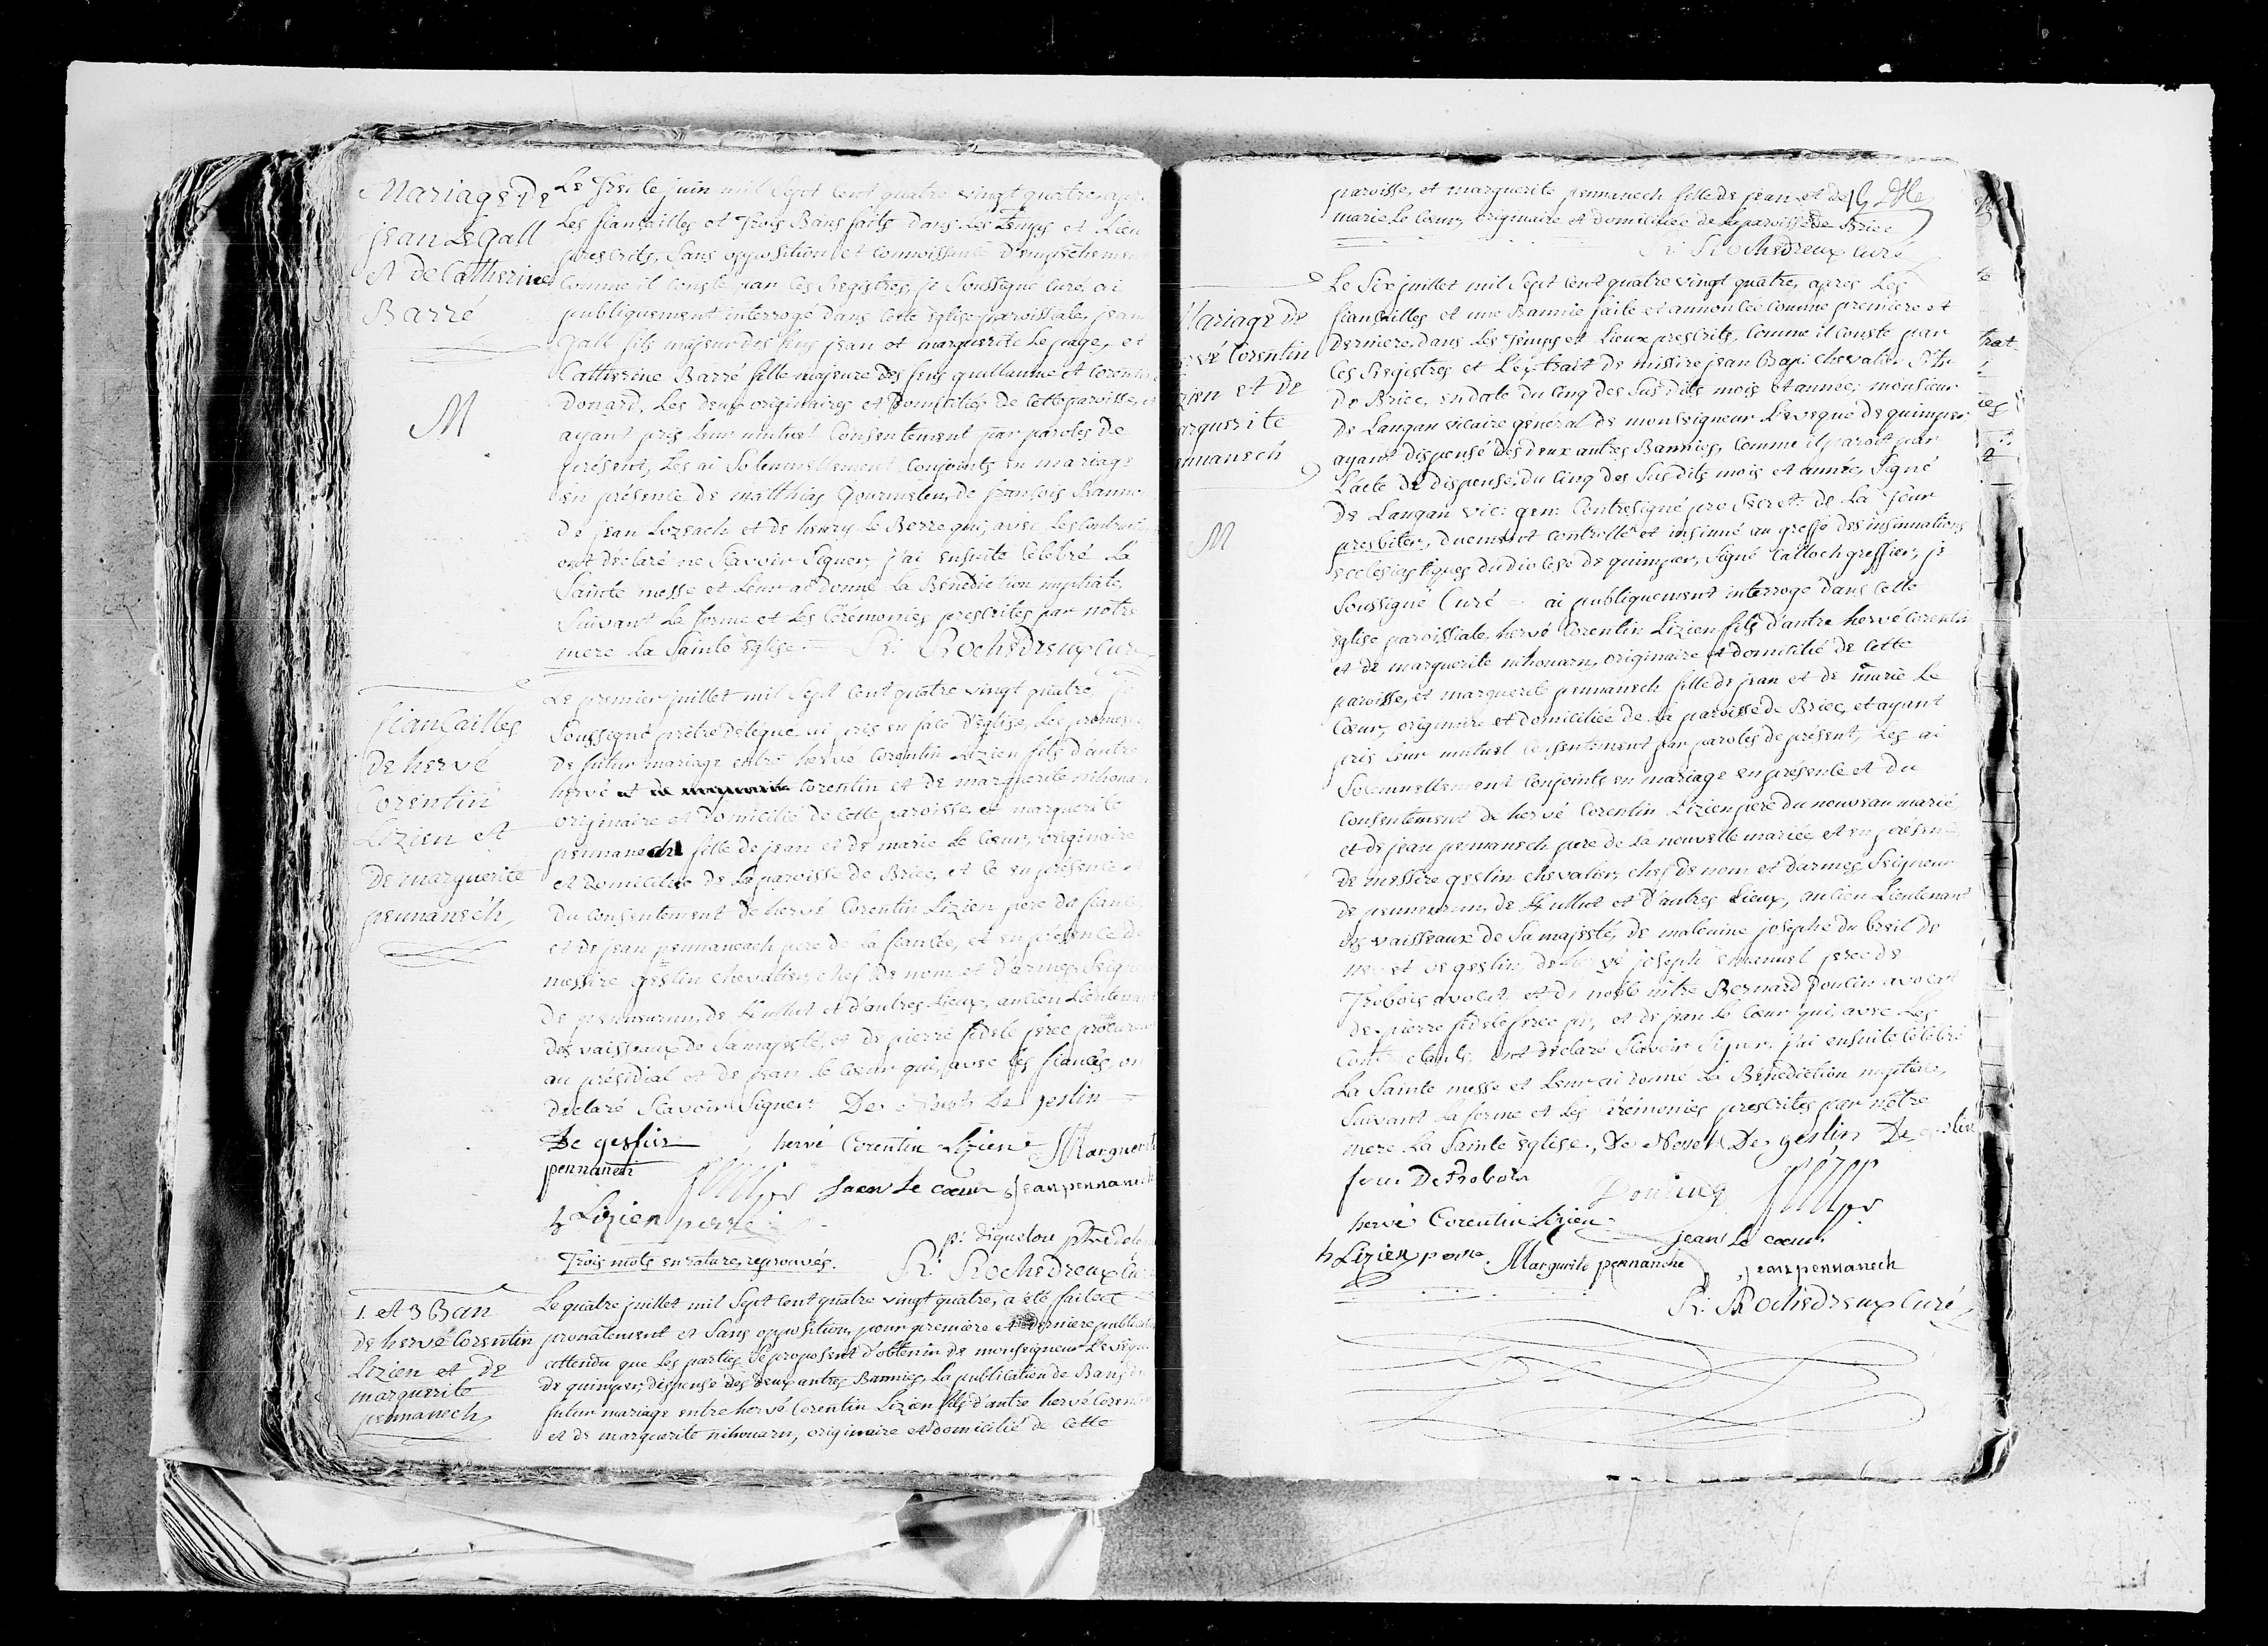 Mariage de
jean Le Gall
et de Catherine
Barré
M
Le juin mil Sept Cent quatre vingt quatre,
Les fiançailles et Trois Bans faits dans Les Temps et Lieu
prescrits, Sans opposition et connoissance d'empechement
Comme il Conste par Ces Registres, je Soussigné Curé, ai
publiquement interrogé dans Cette Eglise paroissiale, jean
Gall fils majeur des feus jean et marguerite Le page, et
Catherine Barré fille majeure des feus guillaume et Corentine
Donard, Les deux originaires et Domiciliés de Cette paroisse,
ayant pris Leur mutuel Consentement par paroles de
présent, Les ai Solemnellement Conjoints en mariage
en présence de matthias Gourmelen, de françois
de jean Lozeach et de henry Le Berre qui, avec Les
ont déclaré ne Scavoir Signer, j'ai ensuite Célébré La
Sainte messe et Leur ai donné La Bénédiction nuptiale,
Suivant La forme et Les Cérémonies prescrites par notre
mere La Sainte Eglise. R: Rochedreux Curé
fiancailles
de hervé
Corentin
Lizien et
de marguerite
pennanech
Le premier juillet mil Sept Cent quatre vingt quatre, je
Soussigné prêtre délégué ai pris en face d'Eglise, Les promesses
de futur mariage entre hervé Corentin Lizien fils d'autre
hervé Corentin et de marguerite nihouarn
originaire et domicilié de Cette paroisse, et marguerite
pennanech fille de jean et de marie Le Cœur, originaire
et domiciliée de La paroisse de Briec, et Ce en présence et
du Consentement de hervé Corentin Lizien pere du fiancé
et de jean pennaneach pere de La fiancée, et en présence de
messire geslin Chevalier, chef de nom et d'armes, Seigneur
de et d'autres Lieux, ancien Lieutenant
des vaisseaux de Sa majesté, et de pierre fidele perec procureur
au présidial et de jean Le Cœur qui, avec Les fiancés, ont
declaré Scavoir Signer. De Nevet De geslin
De geslin hervé Corentin Lizien Marguerite
pennanech jean Le cœur jean pennanech
h Lizien perre
p: diquelou ptre
Trois mots en rature, reprouvés. R: Rochedreux Curé
1. et 3 Ban
de hervé Corentin
Lizien et de
marguerite
pennanech
Le quatre juillet mil Sept Cent quatre vingt quatre, a été faite
pronalement et Sans opposition, pour premiere et derniere publication
attendu que Les parties Se proposent d'obtenir de monseigneur L'eveque
de quimper, dispense des deux autres Bannies, La publication de Bans du
futur mariage entre hervé Corentin Lizien fils d'autre hervé Corentin
et de marguerite nihouarn, originaire et domicilié de Cette
paroisse, et marguerite pennanech fille de jean et de
marie Le Cœur, originaire et domiciliée de La paroisse de Briec
R: Rochedreux Curé
Mariage de
vé Corentin
zien et de
arguerite
nnanech
M
Le Six juillet mil Sept Cent quatre vingt quatre, après Les
fiancailles et une Bannie faite et annoncée Comme premiere et
derniere, dans Les Temps et Lieux prescrits, Comme il Conste par
Ces Registres et L'extrait de missire jean Bapt: chevalier
de Briec, en date du Cinq des Sus dits mois et année; monsieur
de Langan vicaire général de monseigneur L'eveque de quimper,
ayant dispensé des deux autres Bannies, Comme il paroit par
L'acte de dispense, du Cinq des Sus dits mois et année, Signé
de Langan vic: gen: Contresigné pro Secret: de La
presbiter, duement contrôlé et insinué au greffe des insinuations
ecclesiastiques du diocese de quimper, Signé Calloch greffier; je
Soussigné Curé ai publiquement interrogé dans Cette
Eglise paroissiale, hervé Corentin Lizien fils d'autre hervé Corentin
et de marguerite nihouarn, originaire et domicilié de Cette
paroisse, et marguerite pennanech fille de jean et de marie Le
Cœur, originaire et domiciliée de La paroisse de Briec, et ayant
pris Leur mutuel Consentement par paroles de présent, Les ai
Solemnellement Conjoints en mariage en présence et du
Consentement de hervé Corentin Lizien pere du nouveau marié
et de jean pennanech pere de La nouvelle mariée et en présence
de messire geslin chevalier, chef de nom et d'armes Seigneur
de et d'autres Lieux, ancien Lieutenant
des vaisseaux de Sa majesté, de josephe du Breil de
nevet de geslin, de joseph emmanuel
Trobois avocat et de noble mtre Bernard Poulin avocat
de pierre fidele perec pr, et de jean Le Cœur qui, avec Les
Contractants, ont declaré Scavoir Signer, j'ai ensuite Célébré
La Sainte messe et Leur ai donné La Bénédiction nuptiale,
Suivant La forme et Les Cérémonies prescrites par notre
mere La Sainte Eglise. De Nevet De geslin De geslin
De Trobois
hervé Corentin Lizien jean Le cœur
h Lizien perre Marguerite pennaneche jean pennanech
R: Rochedreux Curé